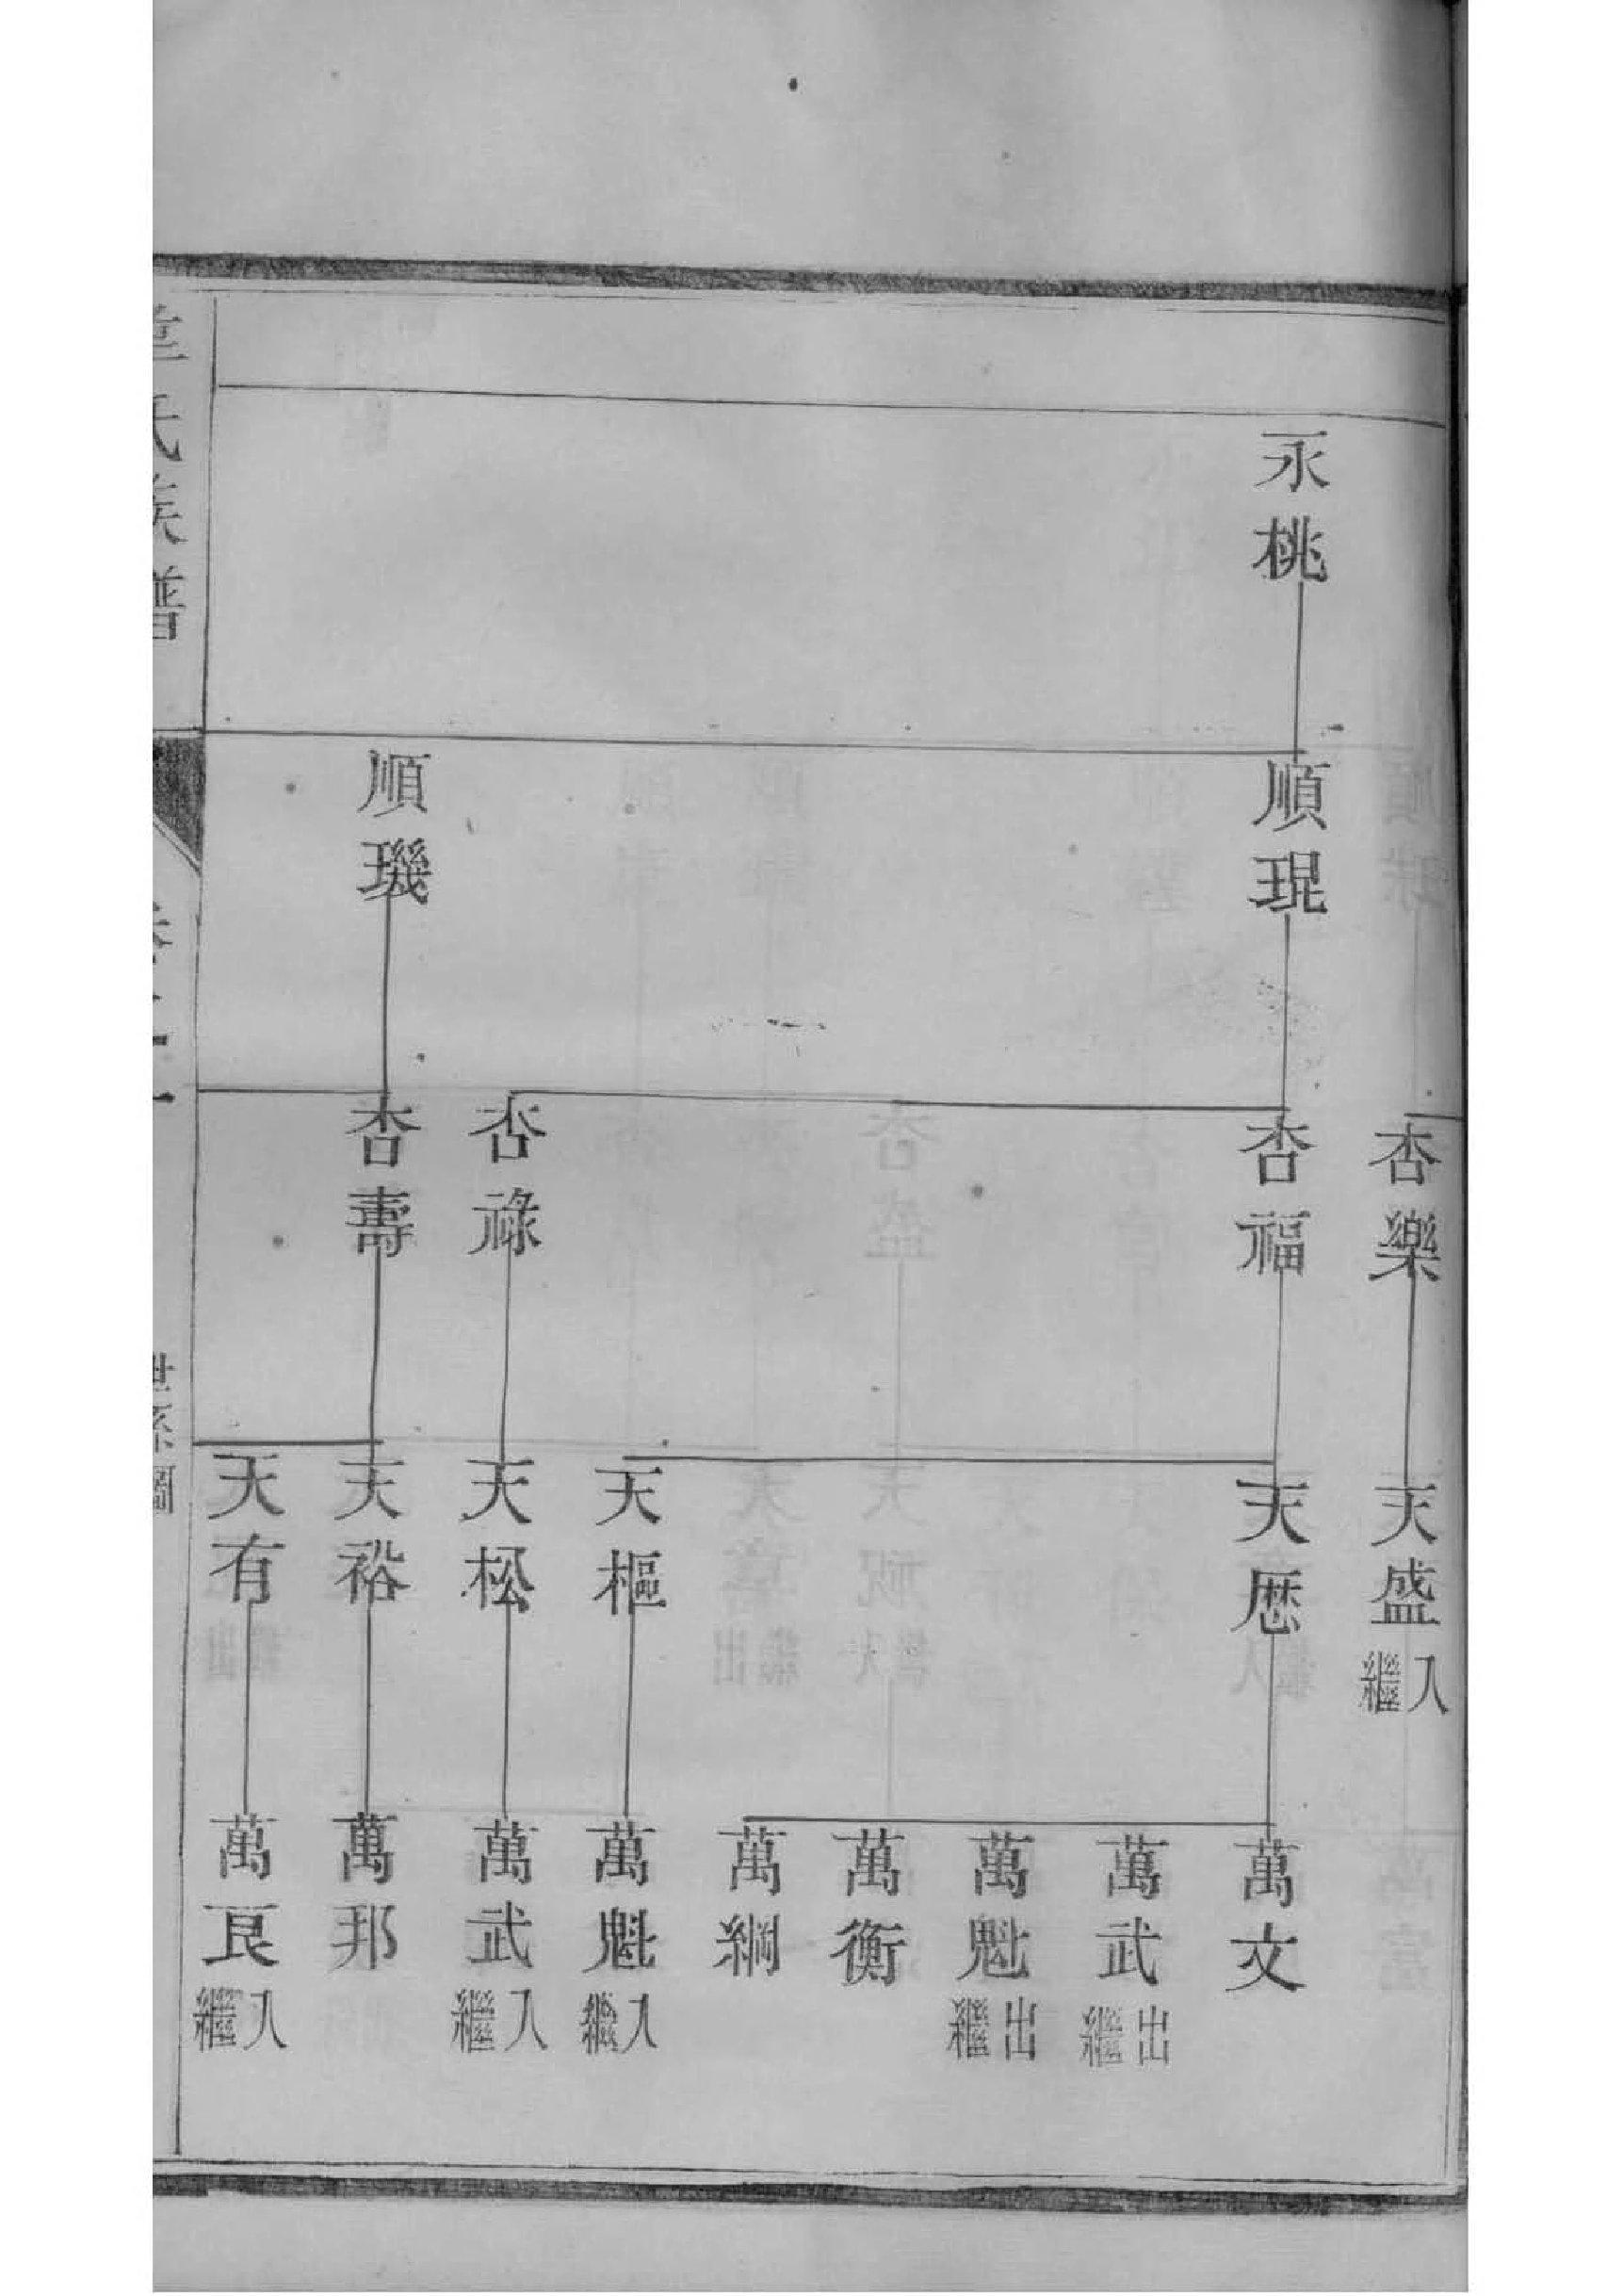 永桃
順琨
順璣
杏樂
杏福
杏祿
杏壽
天盛入繼
天厯
天樞
天松
天裕
天有
萬文
萬武出繼
萬魁出繼
萬衡
萬綱
萬魁入繼
萬武入繼
萬邦
萬良入繼
氏族譜
世系圖